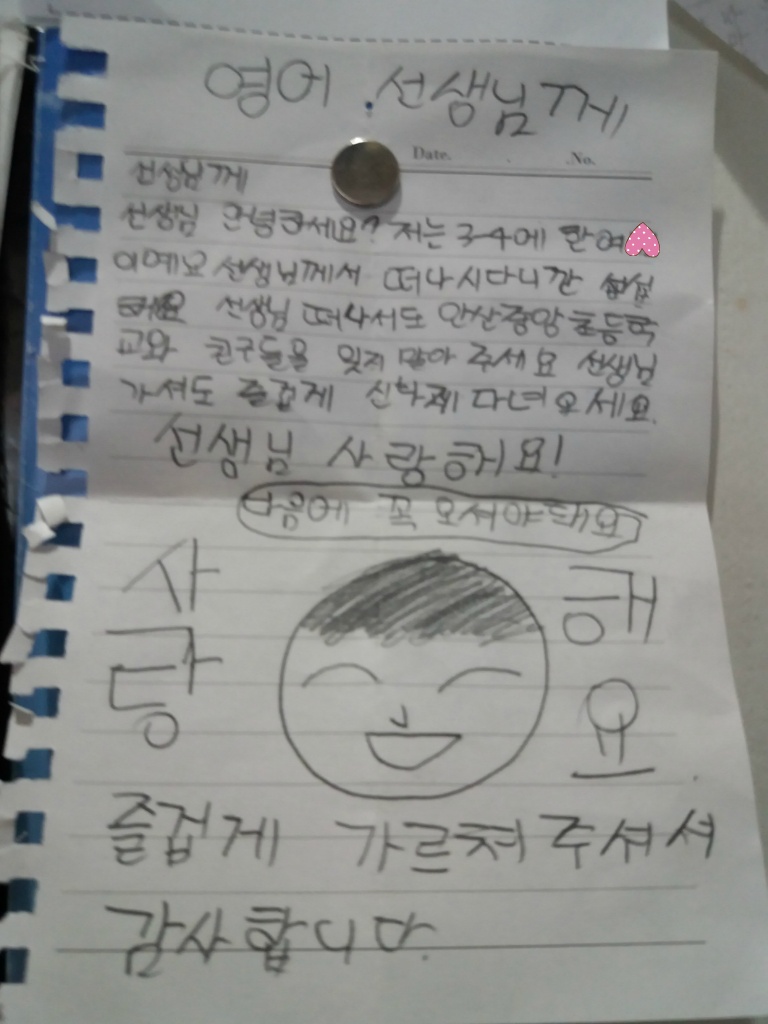 영어 선생님께
Date. .No.
선생님께
선생님 안녕하세요? 저는 3-4에 한예
이예요 선생님께서 떠나시다니깐 섭섭
해요 선생님 떠나서도 안산중앙초등학
교와 친구들을 잊지 말아 주세요 선생님
가셔도 즐겁게 신나게 다녀오세요.
선생님 사랑해요!
다음에 꼭 오셔야돼요
사 해
랑 요.
즐겁게 가르쳐주셔서
감사합니다.